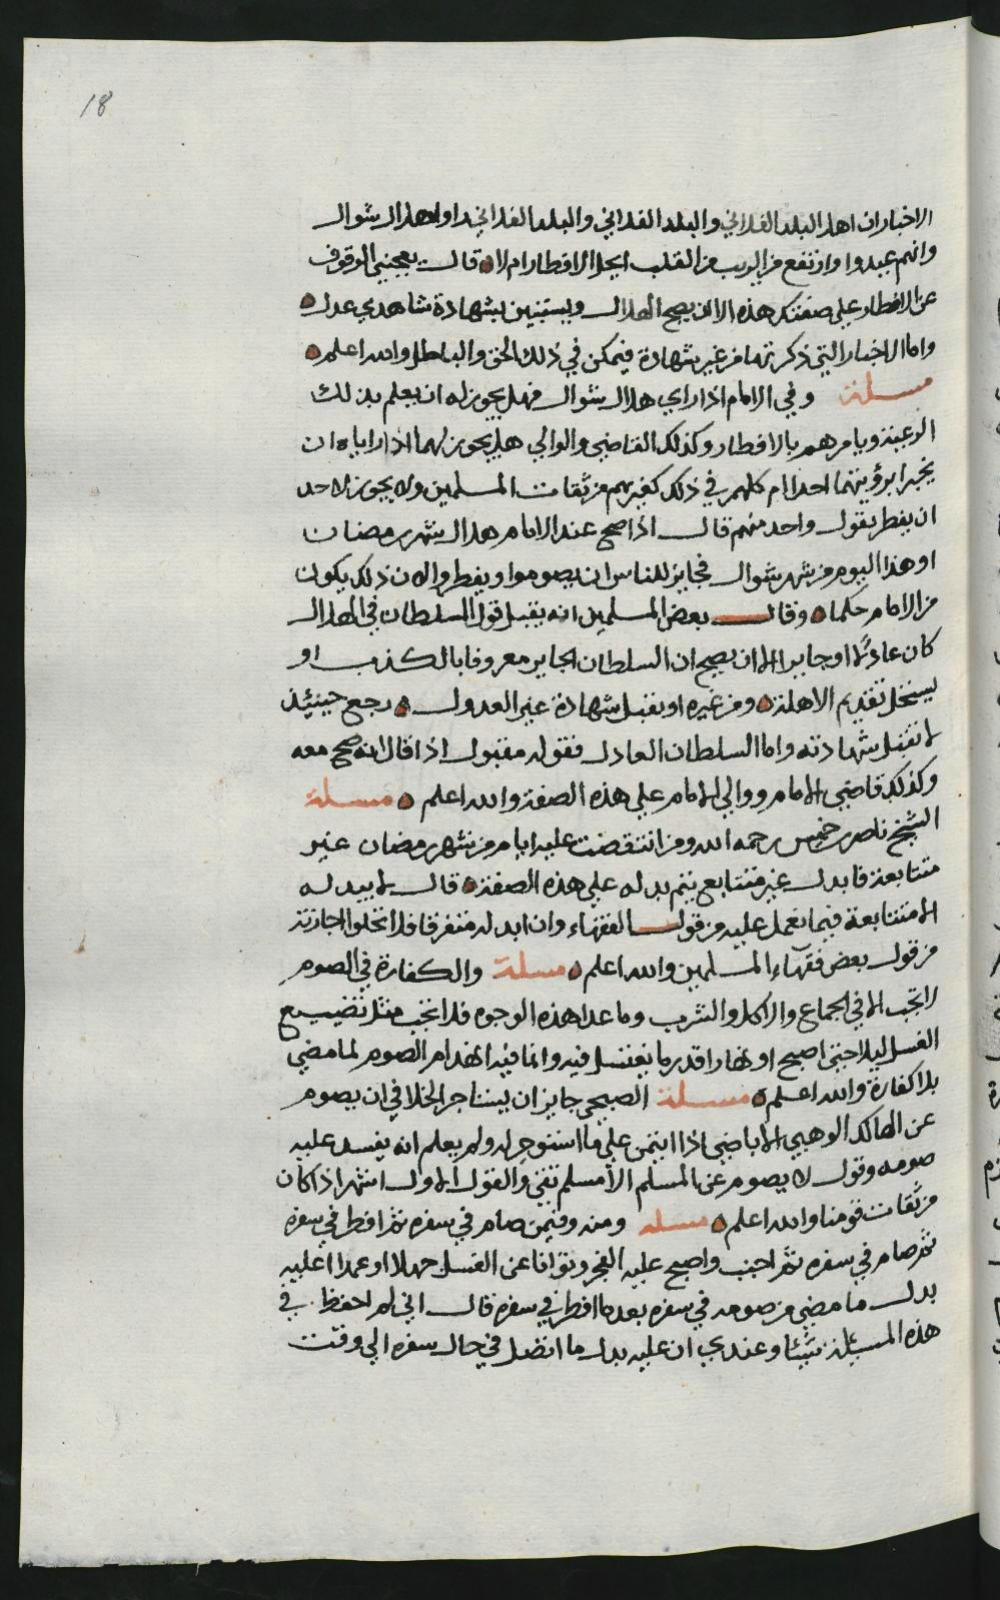 18
الاخبار ان اهل البلد الفلاني والبلد الفلاني والبلد الفلاني راوا هلال شوال
وانهم عيدوا وارتفع من الريب من القلب ايحل الافطار ام لا قال يعجبني الوقوف
عن الافطار على صفتك هذه الا ان يصح الهلال ويستبين بشهادة شاهدي عدل
واما الاخبار التي ذكرتها من غير شهادة فيمكن في ذلك الحق والباطل والله اعلم
مسلة وفي الامام اذا راي هلال شوال فهل يجوز له ان يعلم بذلك
الرعية ويامرهم بالافطار وكذلك القاضي والوالي هل يجوز لهما اذا راياه ان
يخبرا برؤيتهما احدا ام كلهم في ذلك كغيرهم من ثقات المسلمين ولا يجوز لاحد
ان يفطر بقول واحد منهم قال اذا صح عند الامام هلال شهر رمضان
او هذا اليوم من شهر شوال فجايز للناس ان يصوموا ويفطروا لان ذلك يكون
من الامام حكما وقال بعض المسلمين انه يقبل قول السلطان في الهلال
كان عادلا او جايرا الا ان يصح ان السلطان الجاير معروفا بالكذب او
يستحل تقديم الاهلة ومن غيره او يقبل شهادة غير العدول رجع حينيذ
لا تقبل شهادته واما السلطان العادل فقوله مقبول اذا قال انه صح معه
وكذلك قاضي الامام ووالي الامام على هذه الصفة والله اعلم مسلة
الشيخ ناصر بن خميس رحمه الله ومن انتقضت عليه ايام من شهر رمضان غير
متتابعة فابدل غير متتابع يتم بدله على هذه الصفة قال لا يبدله
الا متتابعة فيما نعمل عليه من قول الفقهاء وان ابدله متفرقا فلا تخلوا اجازته
من قول بعض فقهاء المسلمين والله اعلم مسلة والكفارة في الصوم
لا تجب الا في الجماع والاكل والشرب وما عدا هذه الوجوه فلا تجب مثل تضييع
الغسل ليلا حتى اصبح او نهارا قدر ما يغتسل فيه وانما فيه انهدام الصوم لما مضي
بلا كفارة والله اعلم مسلة الصبحي جايز ان يستاجر الخلافي ان يصوم
عن الهالك الوهبي الاباضي اذا ايتمن على ما استوجر له ولم يعلم انه يفسد عليه
صومه وقول لا يصوم عن المسلم الا مسلم تقي والقول الاول اشهر اذا كان
من ثقات قومنا والله اعلم مسله ومنه وفيمن صام في سفره ثم افطر في سفره
ثم صام في سفره ثم اجنب واصبح عليه الفجر وتوانا عن الغسل جهلا او عمدا اعليه
بدل ما مضي من صومه في سفره بعد ما افطر في سفره قال اني لم احفظ في
هذه المسيلة شيئا وعندي ان عليه بدل ما اتصل في حال سفره الي وقت